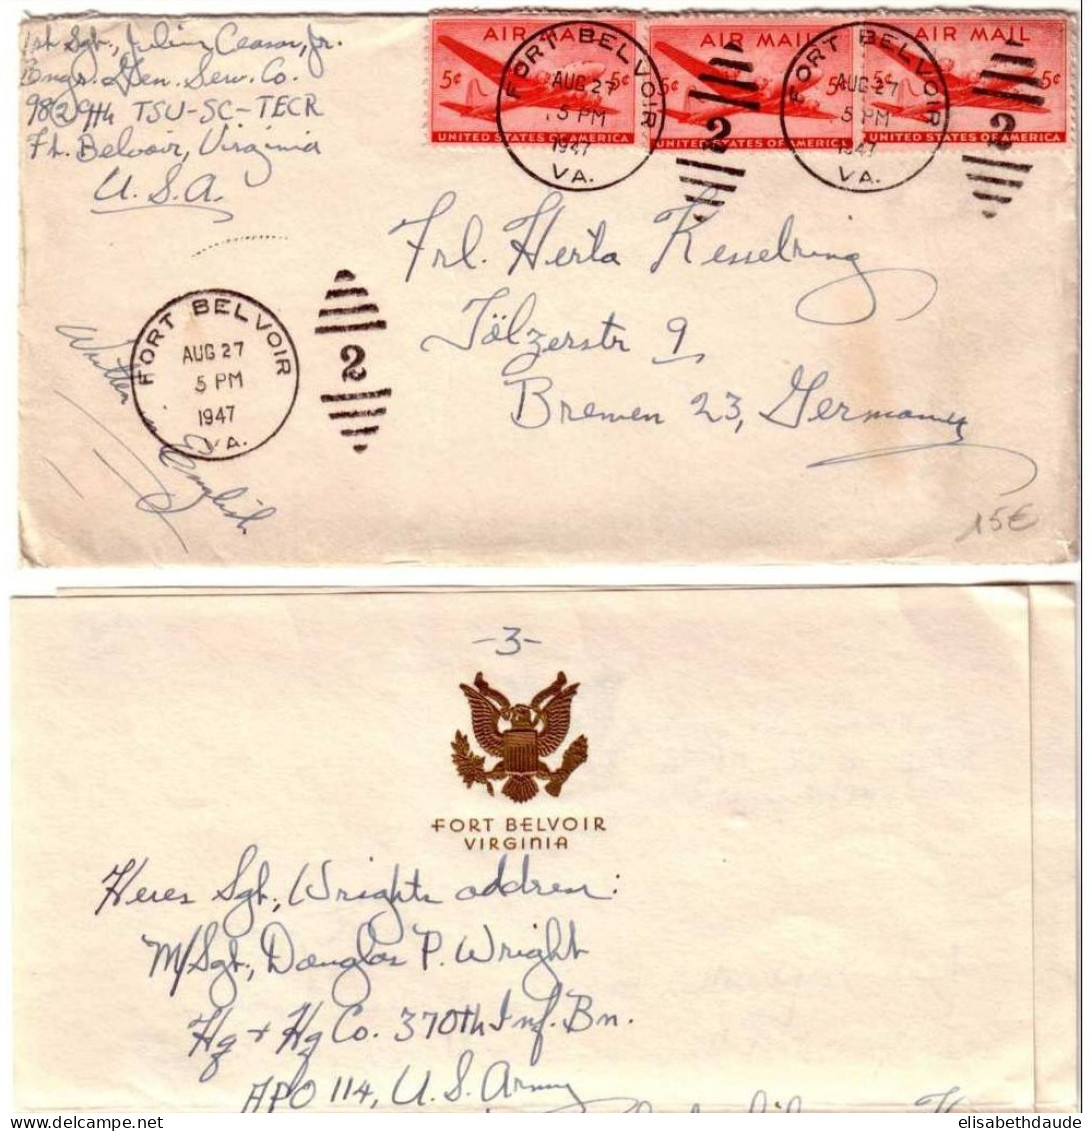 1st Sgt., Julius Ceasar, Jr.
Engr. Gen. Serv. Co.
9829th TSU-SC-TECR
Ft. Belvoir, Virginia
U.S.A.
AIR MAIL
5¢ 5¢
UNITED STATES OF AMERICA
AIR MAIL
5¢
UNITED STATES OF AMERICA
AIR MAIL
5¢ 5¢
UNITED STATES OF AMERICA
FORT BELVOIR
AUG 27
5 PM
1947
VA.
2
FORT BELVOIR
AUG 27
5 PM
1947
VA.
2
Frl. Herta Kesselring
Tölzerstr 9
Bremen 23, Germany
FORT BELVOIR
AUG 27
5 PM
1947
VA.
2
Written in English
15€
-3-
FORT BELVOIR
VIRGINIA
Heres Sgt., Wrights address:
M/Sgt., Douglas P. Wright
Hq + Hq Co. 370th Inf. Bn.
APO 114, U.S. Army
elisabethdaude